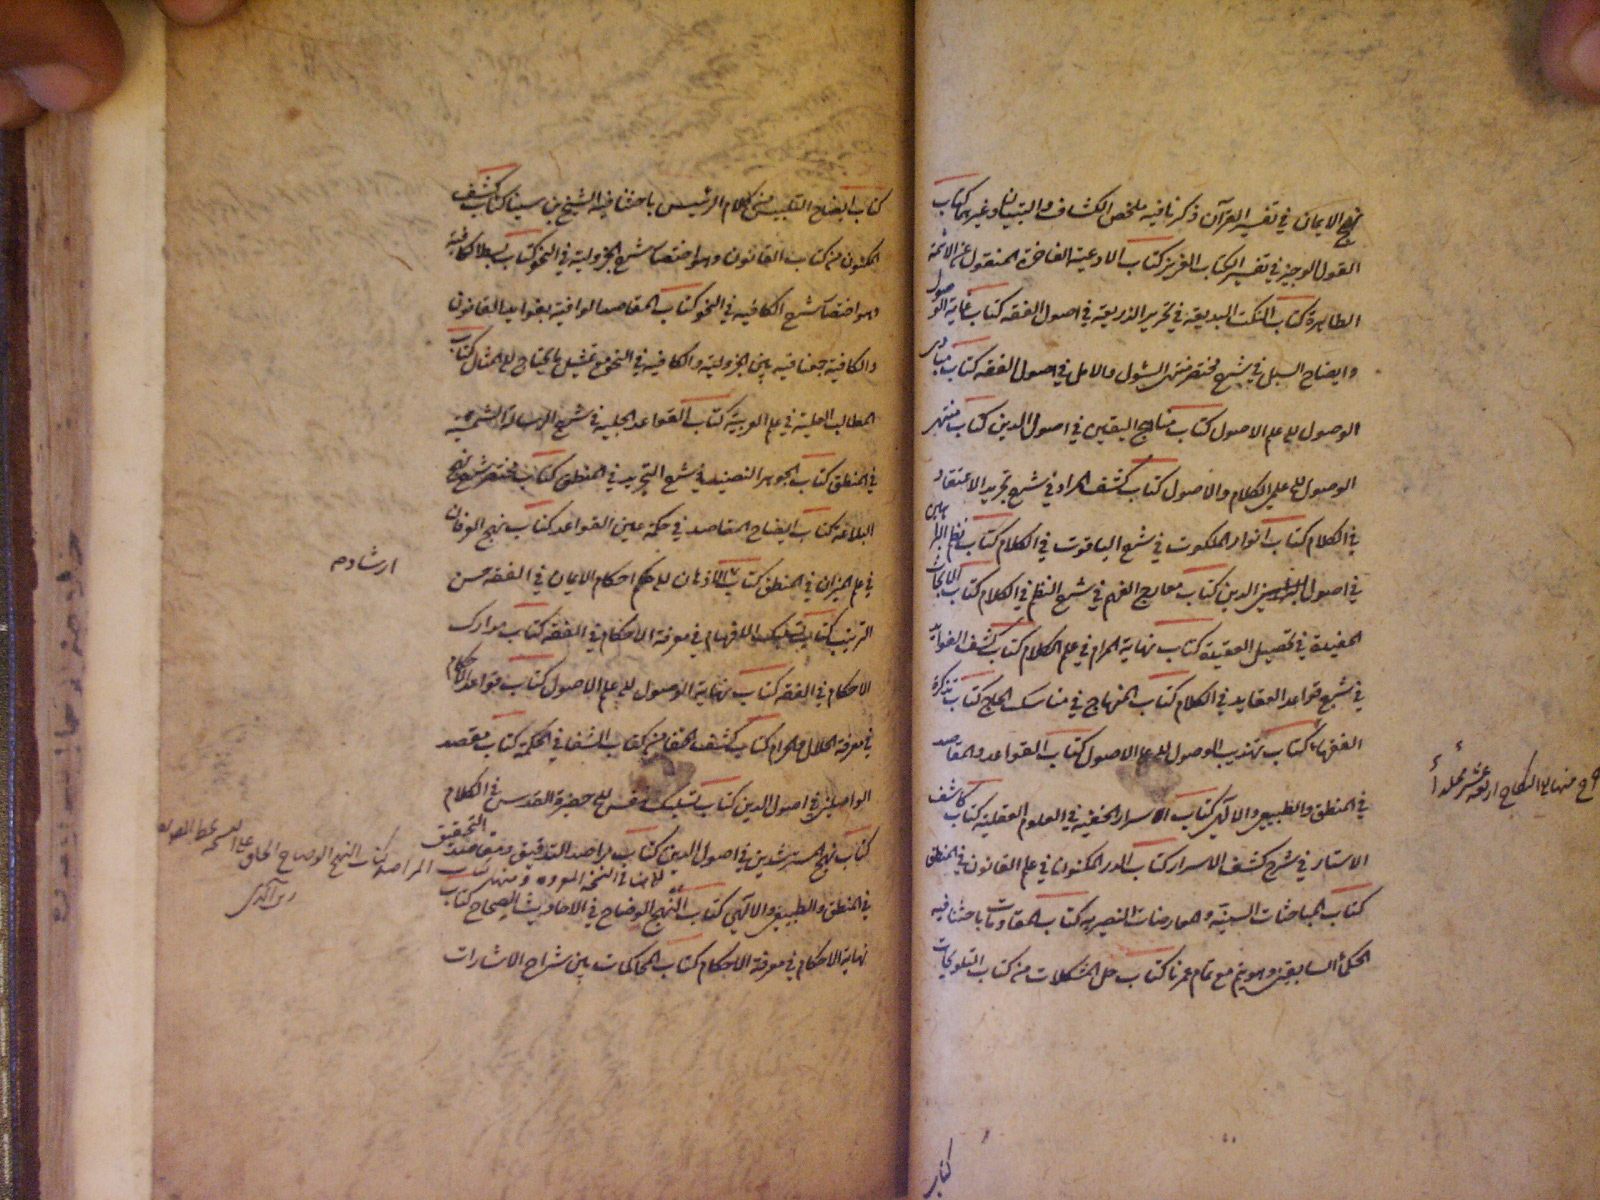 نهج الايمان في تفسير القرآن ذكرنا فيه ملخص الكشاف والتبيان وغيرهما كتاب
القول الوجيز في تفسير الكتاب العزيز كتاب الادعية الفاخرة المنقولة عن الائمة
الطاهرة كتاب النكت البديعة في تحرير الذريعة في اصول الفقه كتاب غاية الوصول
وايضاح السبل في شرح مختصر منتهى السئول والامل في اصول الفقه كتاب مبادى
الوصول الى علم الاصول كتاب مناهج اليقين في اصول الدين كتاب منتهى
الوصول الى علمي الكلام والاصول كتاب كشف المراد في شرح تجريد الاعتقاد
في الكلام كتاب انوار الملكوت في شرح الياقوت في الكلام كتاب نظم البراهين
في اصول الدين كتاب معارج الفهم في شرح النظم في الكلام كتاب الابحاث
المفيدة في تحصيل العقيدة كتاب نهاية المرام في علم الكلام كتاب كشف الفوايد
في شرح قواعد العقايد في الكلام كتاب المنهاج في مناسك الحاج كتاب تذكرة
الفقهاء كتاب تهذيب الوصول الى علم الاصول كتاب القواعد والمقاصد
في المنطق والطبيعي والالهي كتاب الاسرار الخفية في العلوم العقلية كتاب كاشف
الاستار في شرح كشف الاسرار كتاب الدر المكنون في علم القانون في المنطق
كتاب المباحثات السنية والمعارضات النصيرية كتاب المقاومات باحثنا فيه
الحكماء السابقين وهو يتم مع تمام عمرنا كتاب حل المشكلات من كتاب التلويحات
خرج منها الى النكاح اربعة عشر مجلدا
كتاب
كتاب ايضاح التلبيس من كلام الرئيس باحثنا فيه الشيخ بن سينا كتاب كشف
المكنون من كتاب القانون وهو اختصار شرح الجزولية في النحو كتاب بسط الكافية
وهو اختصار شرح الكافيه في النحو كتاب المقاصد الوافية بفوايد القانون
والكافية جمعنا فيه بين الجزولية والكافية في النحو مع تمثيل ما يحتاج الى المثال كتاب
المطالب العلية في علم العربية كتاب القواعد الجلية في شرح الرسالة الشمسية
في المنطق كتاب الجوهر النضيد في شرح التجريد في المنطق كتاب مختصر شرح نهج
البلاغة كتاب ايضاح المقاصد في حكمة عين القواعد كتاب نهج العرفان
في علم الميزان في المنطق كتاب الاذهان الى احكام الايمان في الفقه حسن
ارشاد
الترتيب كتاب تسليك الافهام في معرفة الاحكام في الفقه كتاب مدارك
الاحكام في الفقه كتاب نهاية الوصول الى علم الاصول كتاب قواعد الاحكام
في معرفة الحلال والحرام كتاب كشف الخفا من كتاب الشفا في الحكمة كتاب مقصد
الواصلين في اصول الدين كتاب تسليك النفس الى حضيرة القدس في الكلام
كتاب نهج المسترشدين في اصول الدين كتاب مراصد التدقيق ومقاصد التحقيق
في المنطق والطبيعي والالهي كتاب النهج الوضاح في الاحاديث الصحاح كتاب
نهاية الاحكام في معرفة الاحكام كتاب المحاكمات بين شراح الاشارات